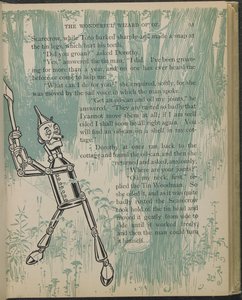 THE WONDERFUL WIZARD OF OZ.
Scarecrow, while Toto barked sharply and made a snap
at the tin legs, which hurt his teeth.
"Did you groan?" asked Dorothy.
"Yes," answered the tin man; "I did. I've been groan-
ing for more than a year, and no one has ever heard me
before or come to help me."
"What can I do for you?" she enquired, softly, for she
was moved by the sad voice in which the man spoke.
"Get an oil-can and oil my joints," he
answered. "They are rusted so badly that
I cannot move them at all; if I am well
oiled I shall soon be all right again. You
will find an oil-can on a shelf in my cot-
tage."
Dorothy at once ran back to the
cottage and found the oil-can, and then she
returned and asked, anxiously,
"Where are your joints?"
"Oil my neck, first," re-
plied the Tin Woodman. So
she oiled it, and as it was quite
badly rusted the Scarecrow
took hold of the tin head and
moved it gently from side to
side until it worked freely,
and then the man could turn
it himself.